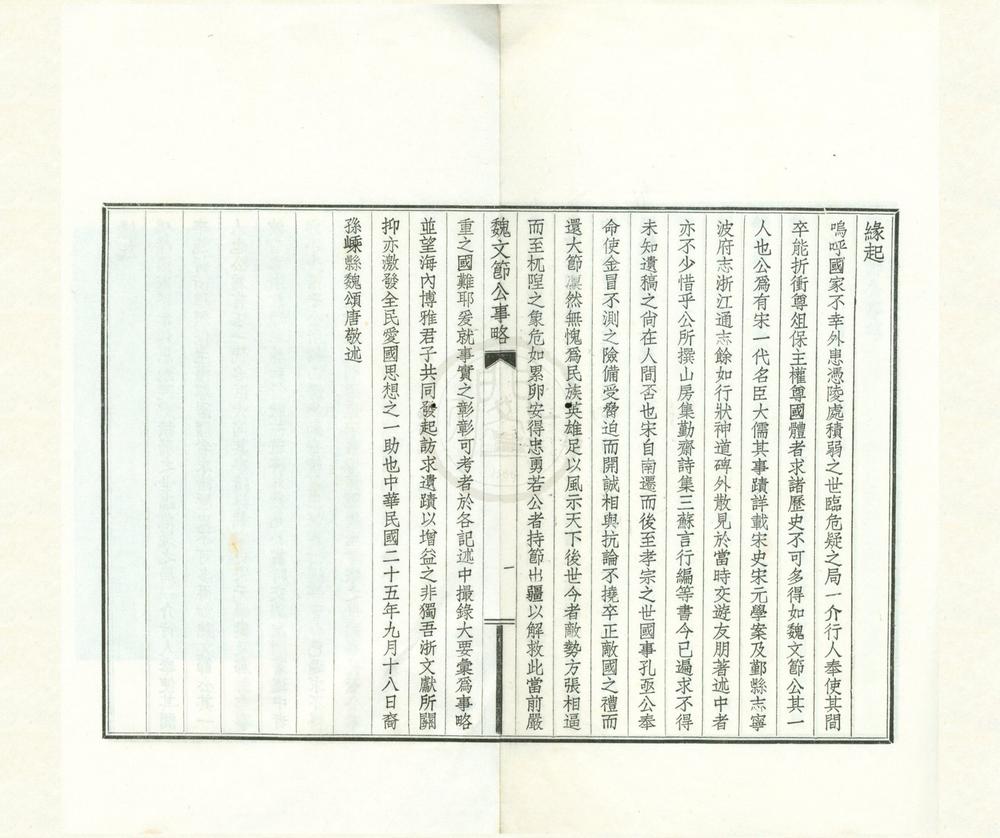 緣起
嗚呼國家不幸外患憑陵處積弱之世臨危疑之局一介行人奉使其間
卒能折衝尊俎保主權尊國體者求諸歷史不可多得如魏文節公其一
人也公爲有宋一代名臣大儒其事蹟詳載宋史宋元學案及鄞縣志寧
波府志浙江通志餘如行狀神道碑外散見於當時交遊友朋著述中者
亦不少惜乎公所撰山房集勤齋詩集三蘇言行編等書今已遍求不得
未知遺稿之尙在人間否也宋自南遷而後至孝宗之世國事孔亟公奉
命使金冒不測之險備受脅迫而開誠相與抗論不撓卒正敵國之禮而
還大節凜然無愧爲民族英雄足以風示天下後世今者敵勢方張相逼
而至杌隉之象危如累卵安得忠勇若公者持節出疆以解救此當前嚴
魏文節公事略
一
重之國難耶爰就事實之彰彰可考者於各記述中撮錄大要彙爲事略
並望海內博雅君子共同發起訪求遺蹟以增益之非獨吾浙文獻所關
抑亦激發全民愛國思想之一助也中華民國二十五年九月十八日裔
孫嵊縣魏頌唐敬述